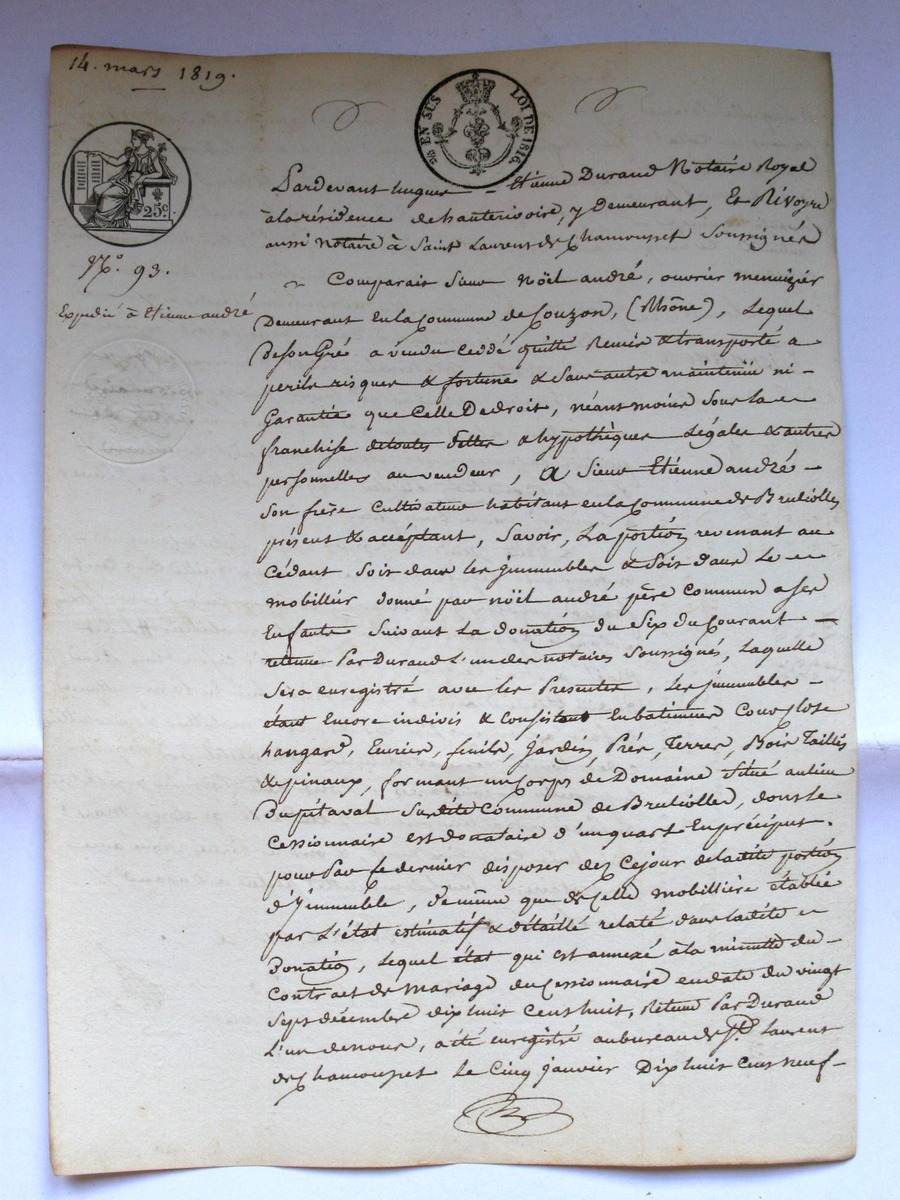 14. mars 1819.
EN SUS LOI DE 1816.
25c.
No. 93.
Expedié à Etienne andré
Pardevant hugues - Etienne Durand Notaire Royal
à la résidence de hauterivoire, y Demeurant, Et Révoyre
aussi Notaire à Saint Laurent de Chamousset Soussignés
Comparait Sieur Noël andré, ouvrier menuizier
Demeurant En la Commune de Couzon, (Rhône), Lequel
De Son Gré a vendu Ceddé quitté Remis & transporté a
perils risques & fortune & Sans autre maintenüe ni -
Garantie que Celle De droit, néant moins Sous la
franchise de toutes dettes & hypothèques Légales & autres
personnelles au vendeur, A Sieur Etienne andré -
Son frère Cultivateur habitant en la Commune de Bruliolles
présent & acceptant, Savoir, La portion revenant au
Cédant Soit dans les jmmeubles & Soit dans Le
mobillier donné par noël andré père Commun a Ses
Enfants Suivant La donation du Six du Courant -
retenue Par Durand L'un des notaires Soussignés, Laquelle
Sera enregistré avec les Presentes, Les jmmeubles -
étant Encore indivis & Consistant En batiments Cour Close
hangard, Ecurier, finils, jardin, Prés, Terres, Bois Taillis
& pinaux, formant un Corps de Domaine Situé au lieu
Du pitaval Susdite Commune de Brulliolles, dont le
Cessionnaire est donataire d'un quart En préciput.
pour Par Ce dernier disposer dès Ce jour de la dite portion
d'Jmmeuble, De même que de Celle mobillière établie
par L'état estimatif & détaillé relaté dans la dite
Donation, Lequel état qui est annexé à la minutte du -
Contract de Mariage du Cessionnaire en date du vingt
Sept décembre dix huit Cent huit, Retenu Par Durand
L'un de nous, a été enregistré au bureau de St. Laurent
de Chamousset le Cinq janvier Dix huit Cent neuf -